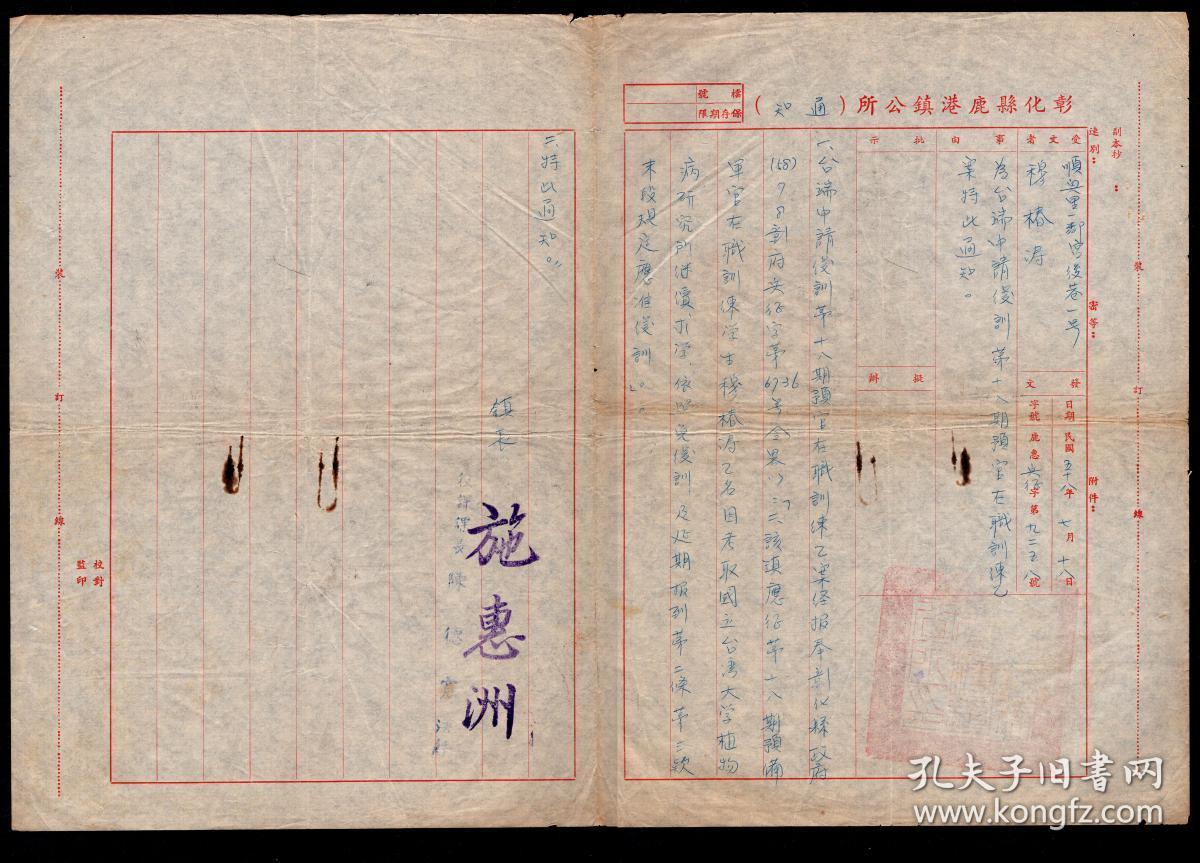 彰化縣鹿港鎮公所（通知）
檔號
保存期限
副本抄：
速別：
密等：
附件：
受文者
順興里一鄰宮後巷一号
穆椿濤
事由
為台端申請緩訓第十八期預官在職訓練乙
案特此通知。
批示
擬辦
發文
日期 民國五十八年七月十八日
字號 鹿惠兵征字第九二五八號
一、台端申請緩訓第十八期預官在職訓練乙案經報奉彰化縣政府
(58)7 8彰府兵征字第6736号令果以「二、該鎮應征第十八期預備
軍官在職訓練学士穆椿濤乙名因考取國立台湾大学植物
病研究所继續求学，依照免緩訓及延期报到第二條第三款
末段規定應准緩訓」。
二、特此通知。
鎮長 施惠洲
陳德
裝 訂 線
裝 訂 線
校對
監印
孔夫子旧書网
www.kongfz.com